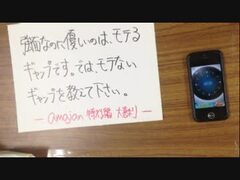 強面なのに優しいのは、モテる
ギャップです。では、モテない
ギャップを教えて下さい。
— amajan 特別篇 大喜利 —